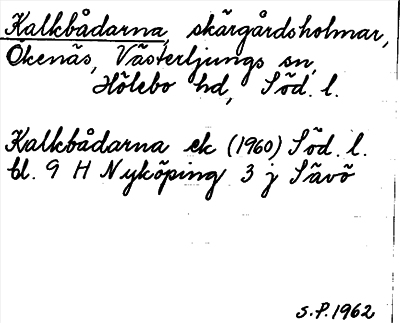 Kalkbådarna, skärgårdsholmar,
Ökenäs, Västerljungs sn,
Hölebo hd, Söd. l.
Kalkbådarna ek (1960) Söd. l.
bl. 9 H Nyköping 3 j Sävö
S.P. 1962